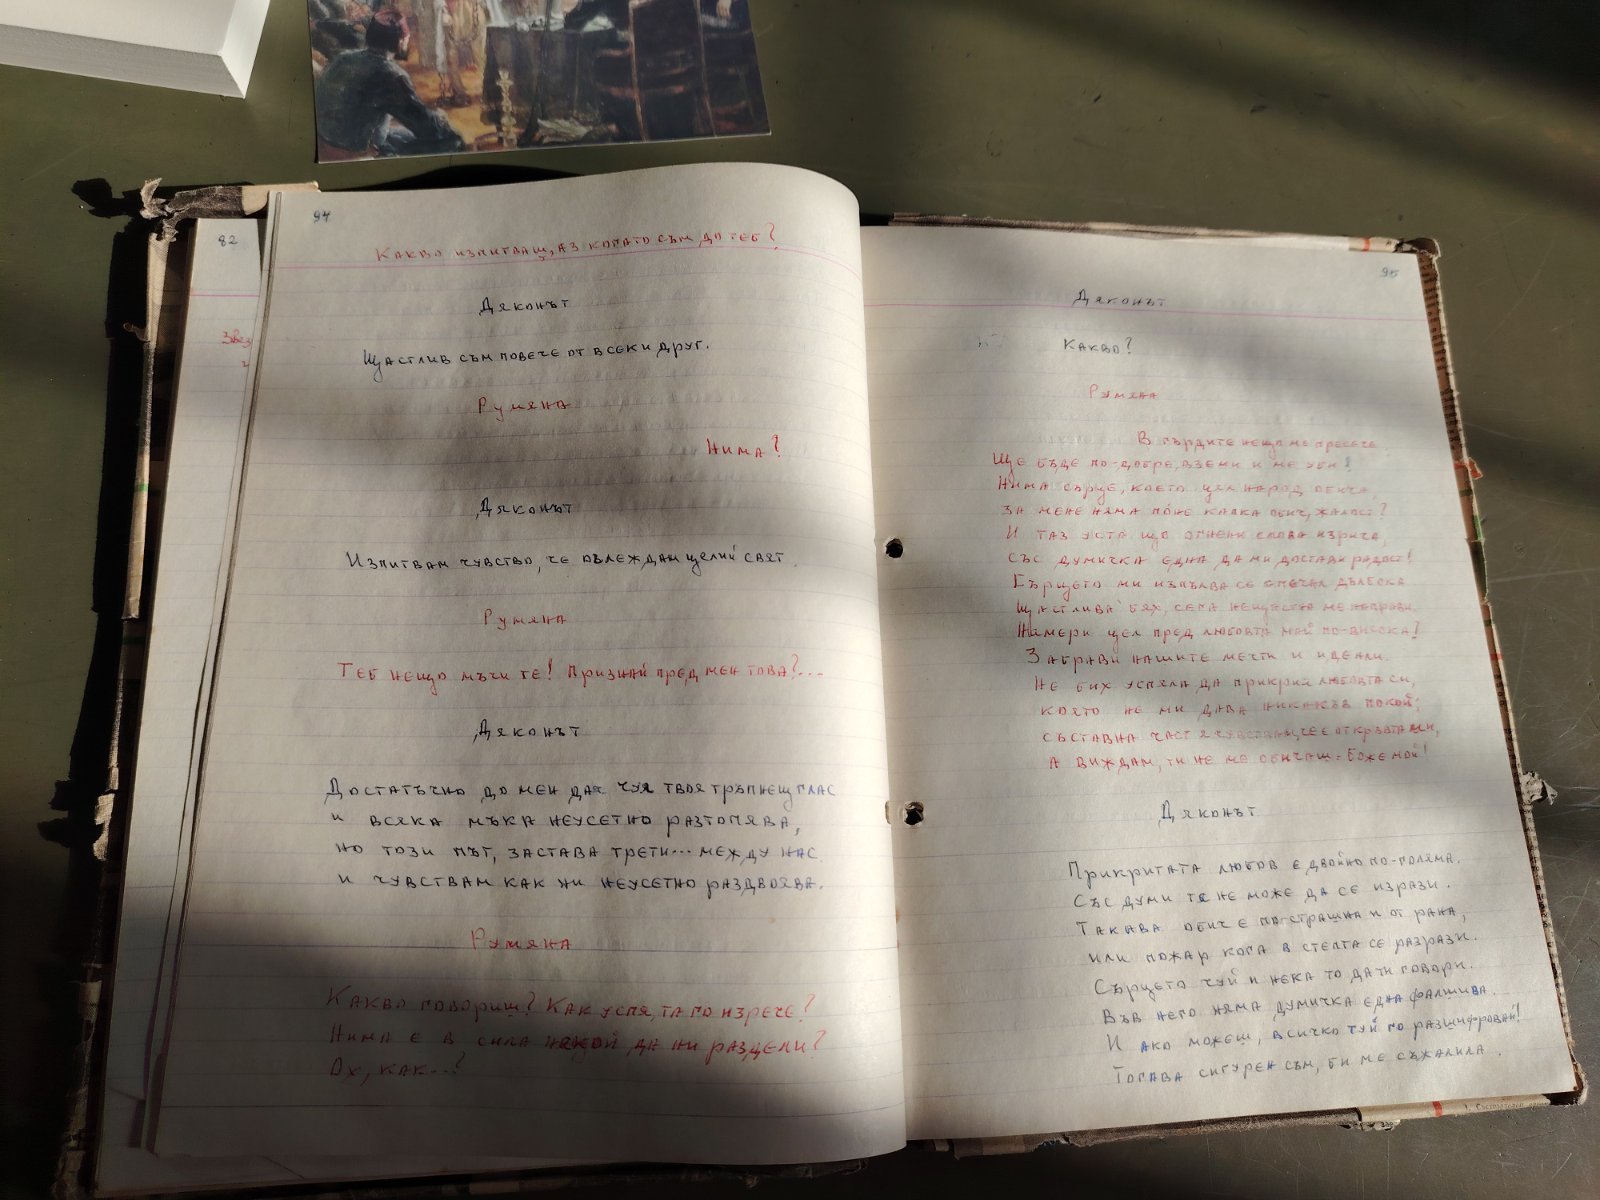 82
Звез
94
Какво изпитваш, аз когато съм до теб?
Дяконът
Щастлив съм повече от всеки друг.
Румяна
Нима?
Дяконът
Изпитвам чувство, че овлеждам целий свят.
Румяна
Теб нещо мъчи те! Признай пред мен това?...
Дяконът
Достатъчно до мен да чуя твоя тръпнещ глас
и всяка мъка неусетно разтопява,
но този път, застава трети... между нас
и чувствам как ни неусетно раздвоява.
Румяна
Какво говориш? Как успя, та го изрече?
Нима е в сила някой да ни раздели?
Ох, как...?
95
Дяконът
Какво?
Румяна
В гърдите нещо ме пресече
Ще бъде по-добре, вземи и ме уби!
Нима сърце, което цял народ обича,
за мене няма поне капка обич, жалост?
И таз уста що огнени слова изрича,
със думичка една да ми достави радост!
Сърцето ми изпълва се с печал дълбока
Щастлива бях, сега нещастна ме направи.
Намери цел пред любовта май по-висока?
Забрави нашите мечти и идеали.
Не бих успяла да прикрия любовта си,
която не ми дава никакъв покой;
съставна част
а виждам, ти не ме обичаш. Боже мой!
Дяконът
Прикритата любов е двойно по-голяма.
Със думи тя не може да се изрази.
Такава обич е по-страшна и от рана,
или пожар кога в степта се разрази.
Сърцето чуй и нека то да ти говори.
Във него няма думичка една фалшива.
И ако можеш, всичко туй го разшифровай!
Тогава сигурен съм, би ме съжалила.